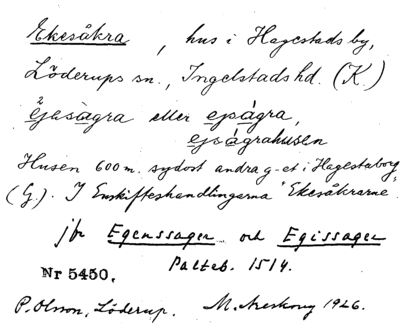 Ekesåkra, hus i Hagestads by,
Löderups sn., Ingelstads hd. (K.)
ejesågra eller ejsågra,
ejsågrahusen
Husen 600 m. sydost andra g-et i Hagestaborg
(G.). I Enskifteshandlingarna "Ekesåkrarne"
jfr Egenssager och Egissager
Palteb. 1514.
Nr 5450.
P. Olsson, Löderup. M. Areskoug 1926.